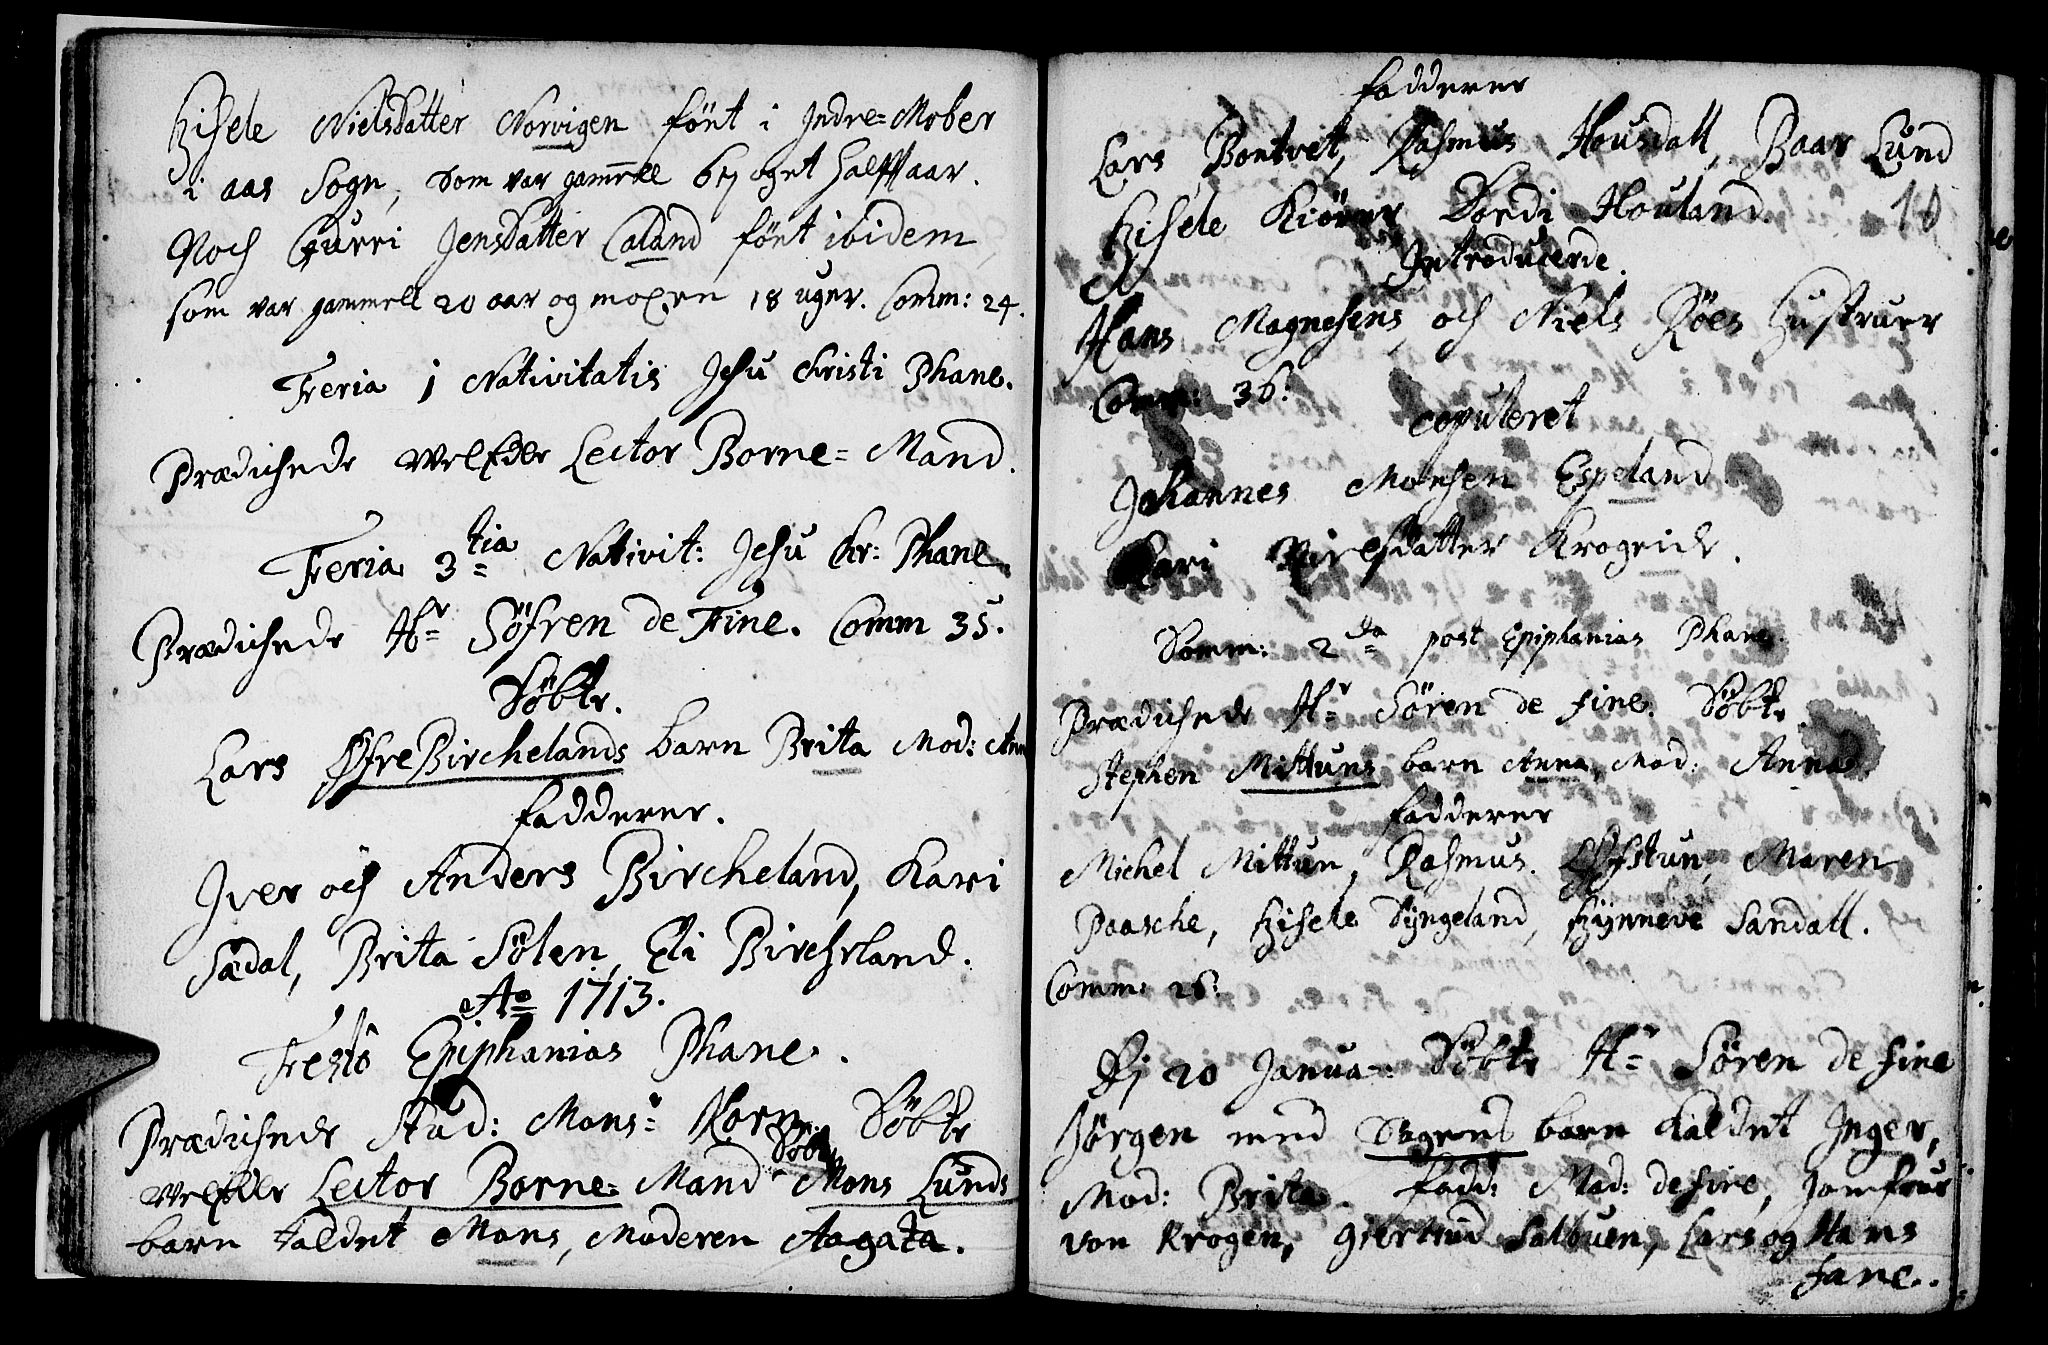 Zisele Nielsdatter Norvigen fönt i Indre=Mober
i aas Sogn, Som var gammell 6tj oget halfft aar.
Noch Gurri Jensdatter Caland fönt ibidem
som var gammell 20 aar og moxen 18 uger. Comm: 24.
Feria 1 Nativitatis Jesu Christi Phane.
Prædichede Welædle Lector Borne=Mand.
Feria 3tia Nativit: Jesu Chr: Phane.
Prædichede Hr Söfren de Fine. Comm 35.
Döbte.
Lars ØfreBirchelands barn Brita Mod: Ann
Fadderer.
Iver och Anders Bircheland, Kari
Sædal, Brita Sölen, Eli Bircheland.
Ao 1713.
Festo Epiphanias Phane.
Prædichede Stud: Monsr Korn. Döbte
Welædle Lector Borne=Mand Mons Lunds
barn kaldet Mons, Moderen Aagata.
Fadderer
Lars Bontvet, Rasmus Housdall, Baar Lund
Zisele Dordi Houland. 18
Introducerde.
Hans Magnesens och Niels Röes Hustruer
Comm: 36.
copuleret
Johannes Monsen Espeland
Kari Nielsdatter Krogeide.
Domm: 2da post Epiphanias Phane.
Prædichede Hr Sören de Fine. Döbte
Stephen Mittuns barn Anna, Mod: Anna
Fadderer
Michel Mittun, Rasmus Øfstun, Maren
Paasche, Zisele Dyngeland, Zynneve Sandall.
Comm: 26.
Dj 20 Janua: Döbte Hr Sören de Fine
Jörgen med barn kaldet Inger,
Mod: Brita. Fadd: Mad: de fine, Jomfrue
von Krogen, Giertrud Salbuen, Lars og Hans
Fane.